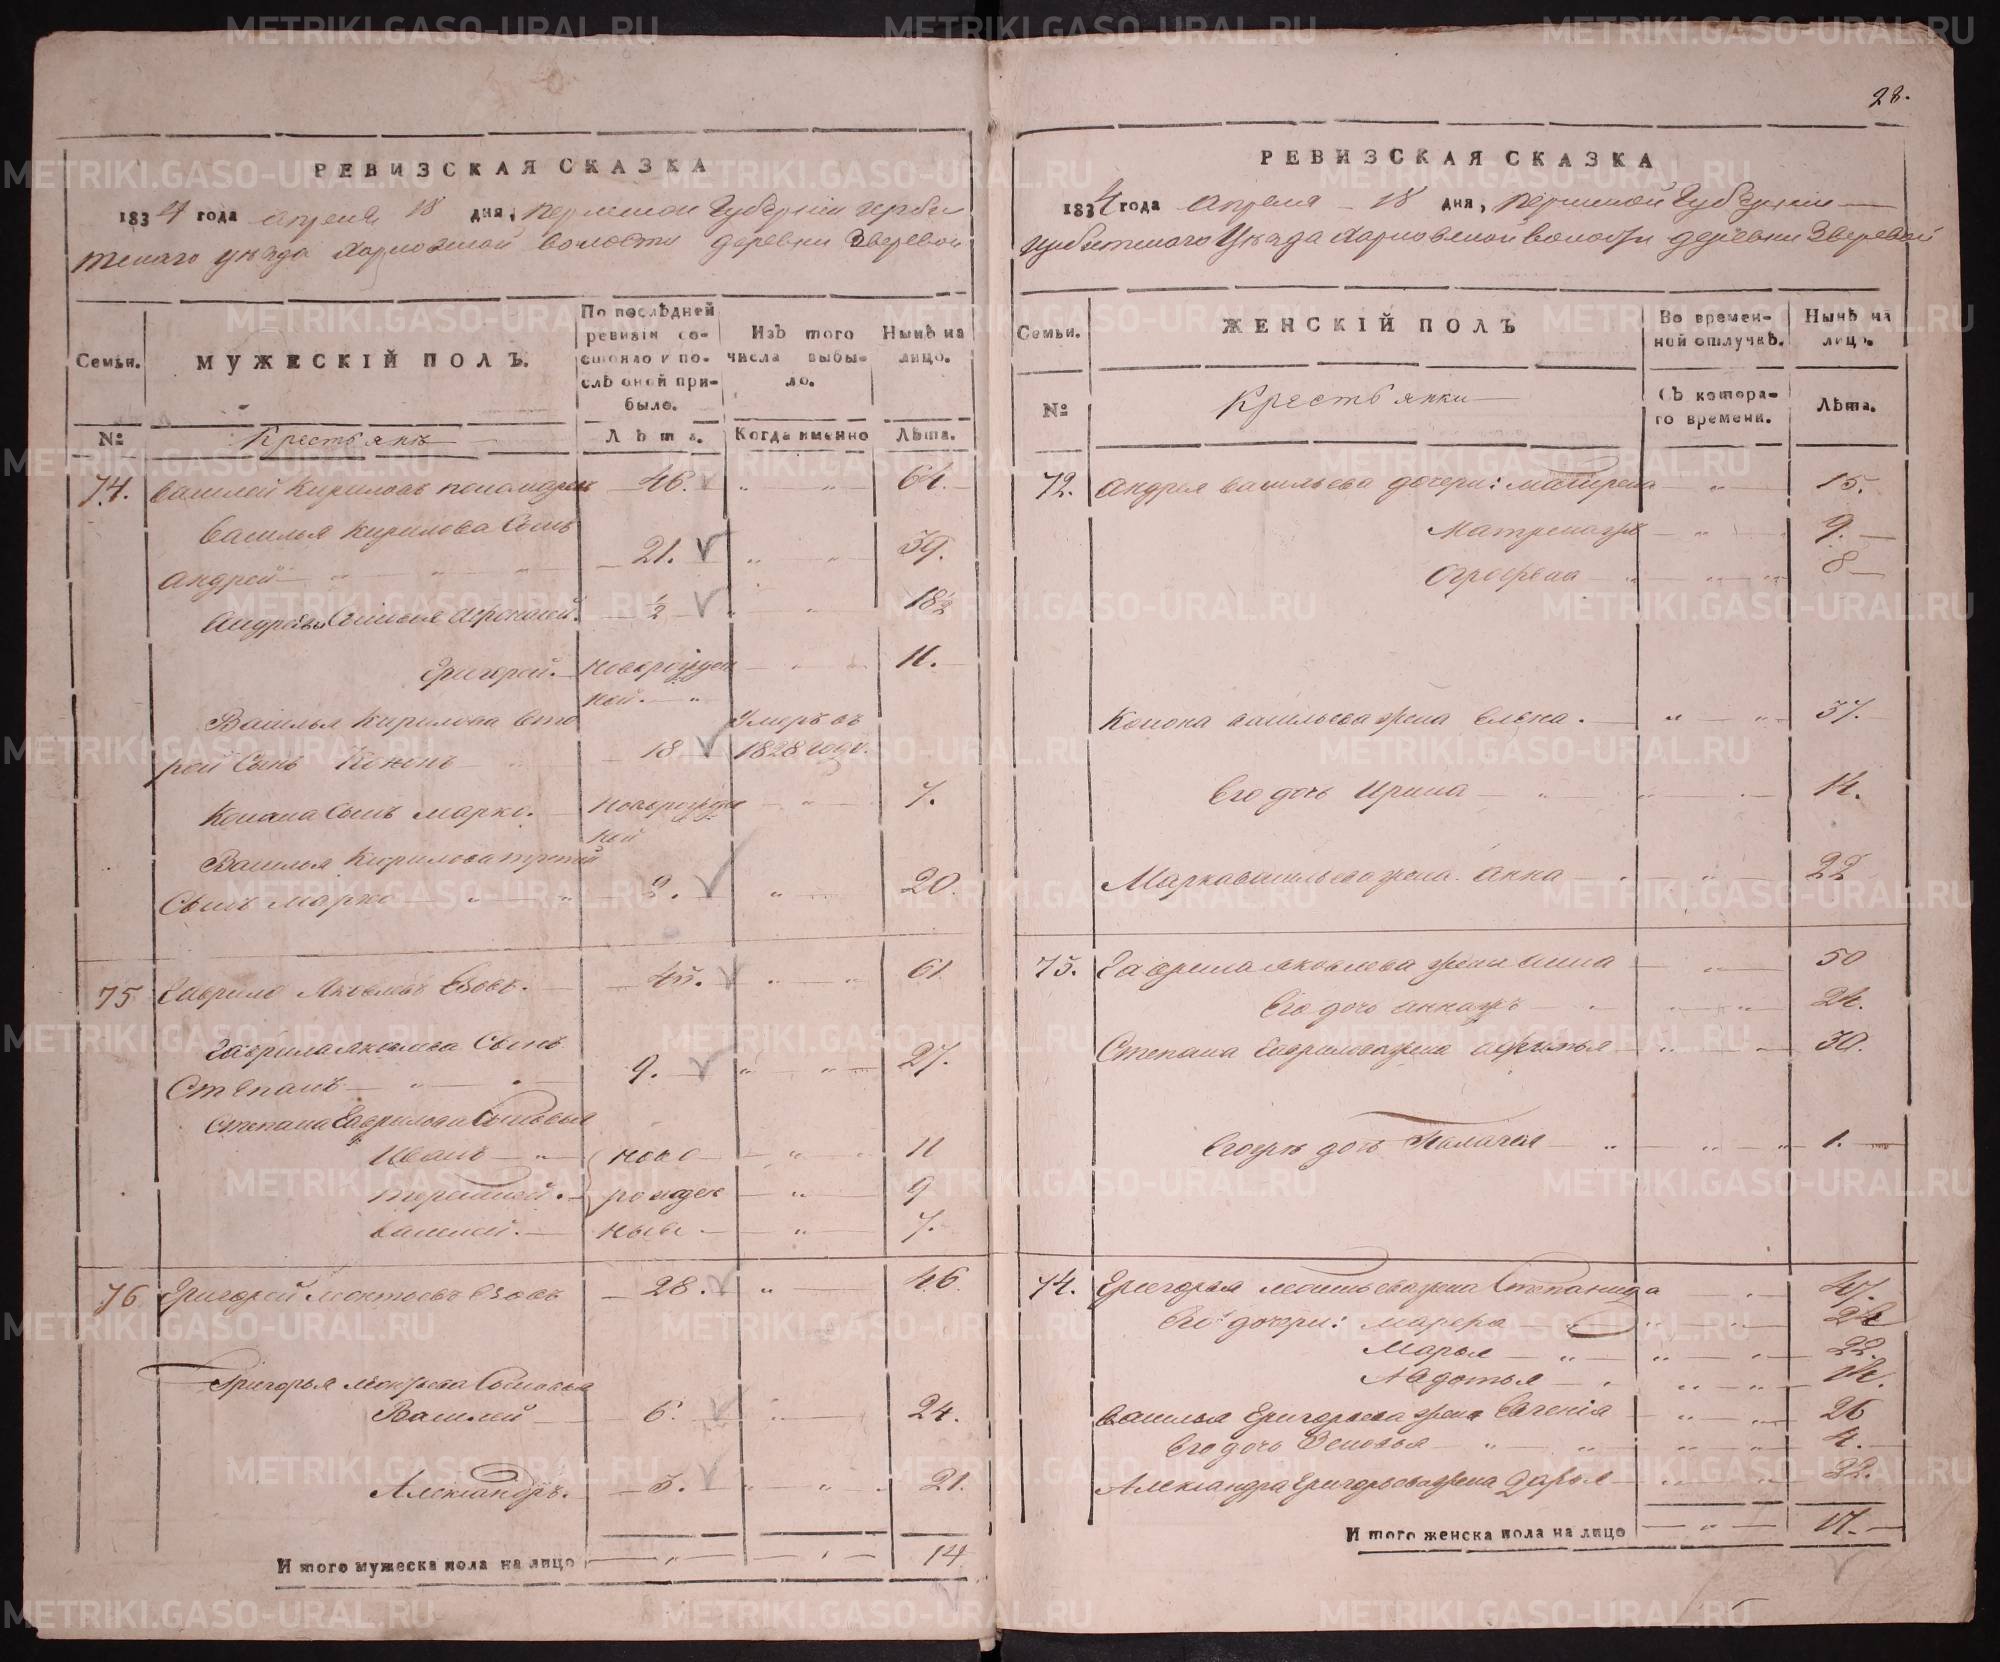 28.
РЕВИЗСКАЯ СКАЗКА
1834 года апреля 18 дня, Пермской Губернии Ирби
тскаго уезда Харловской волости деревни Зверевой
Семьи.
МУЖЕСКІЙ ПОЛЪ.
По послѣдней ревизіи состояло и послѣ оной прибыло.
Изъ того числа выбыло.
Нынѣ на лицо.
№
Крестьяне
Лѣта.
Когда именно
Лѣта.
74. Василей Кириловъ пономаревъ 46. 64.
Василья Кирилова Сынъ
Андрей 21. 39.
Андрея Сыновья 1/2 18 1/2
Григорей. новорожден 11.
ной.
Василья Кирилова вто Умеръ въ
рой Сынъ Кононъ 18 1828 году.
Конана Сынъ Марко. новорожде 7.
ной
Василья Кирилова третей
Сынъ Марко 2. 20.
75 Гаврило Яковлевъ Езовъ. 45. 61
Гаврила Яковлева Сынъ
Степанъ 9. 27.
Степана Гаврилова Сыновья
Иванъ ново 11
рожден 9
Василей. ныя 7.
76 Григорей Езовъ 28. 46
Григорья Сыновья
Василей 6. 24.
Александръ. 3. 21.
И того мужеска пола на лицо 14
РЕВИЗСКАЯ СКАЗКА
1834 года Апреля 18 дня, Пермской Губернии
Ирбитскаго Уезда Харловской волости деревни Зверевой
Семьи.
ЖЕНСКІЙ ПОЛЪ
Во временной отлучкѣ.
Нынѣ на лицо.
№
Крестьянки
Съ котораго времени.
Лѣта.
72. Андрея Васильева дочери: Матрена 15.
Матрена 9.
Огрофена 8
Конона Васильева жена Елена. 37.
Его дочь Ирина 14.
Марка Васильева жена Анна 22
75. Гаврила Яковлева жена Анна 50
Его дочь Анна 24.
Степана Гаврилова жена 30.
дочь Палагея 1.
74. Григорья жена Степанида 47.
Его дочери: 24
Марья 22.
Авдотья 14.
Василья Григорьева жена Евгения 26
Его дочь Зеновья 4.
Александра Григорьева жена Дарья 22.
И того женска пола на лицо 17.
METRIKI.GASO-URAL.RU